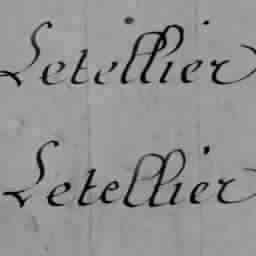 Letellier
Letellier